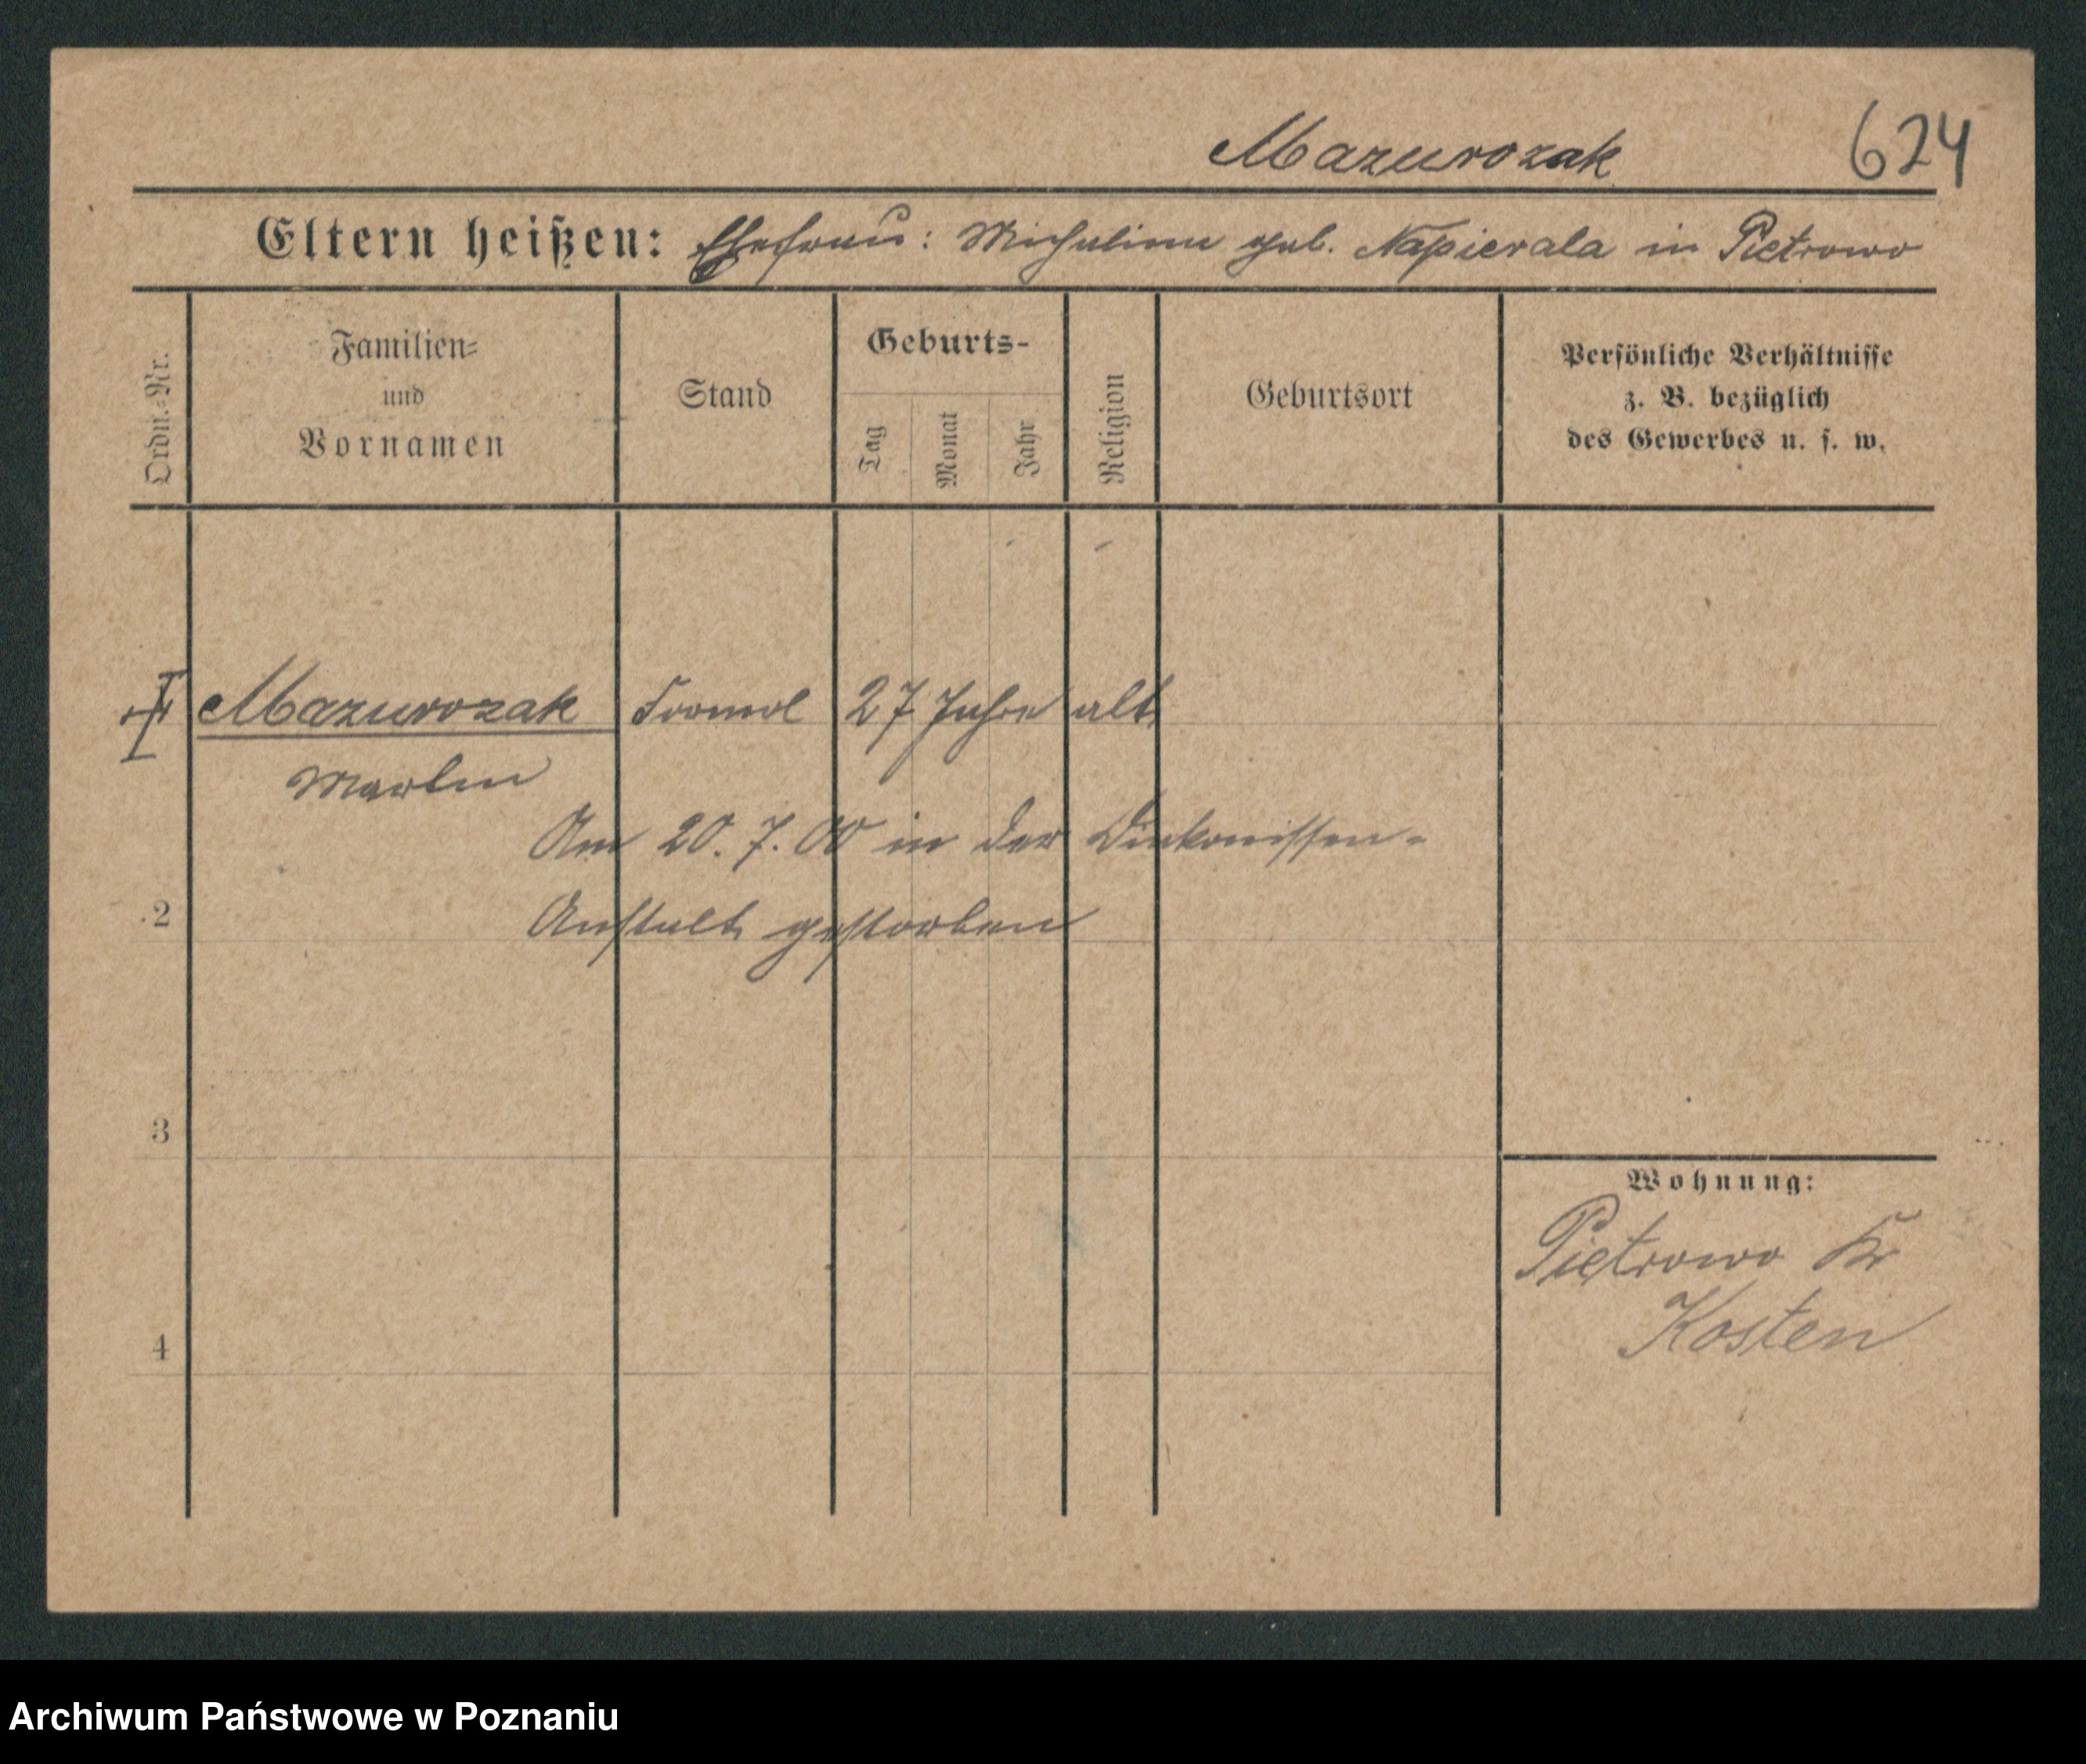 Mazurczak 624
Eltern heißen: Ehefrau: Michalina geb. Napierala in Pietrowo
Ordn.=Nr.
Familien=
und
Vornamen
Stand
Geburts-
Tag
Monat
Jahr
Religion
Geburtsort
Persönliche Verhältnisse
z. B. bezüglich
des Gewerbes u. s. w.
Mazurczak Fornal 27 Jahre alt
Martin
Am 20. 7. 00 in der Diakonissen-
2 Anstalt gestorben
3
Wohnung:
Pietrowo Kr
Kosten
4
Archiwum Państwowe w Poznaniu